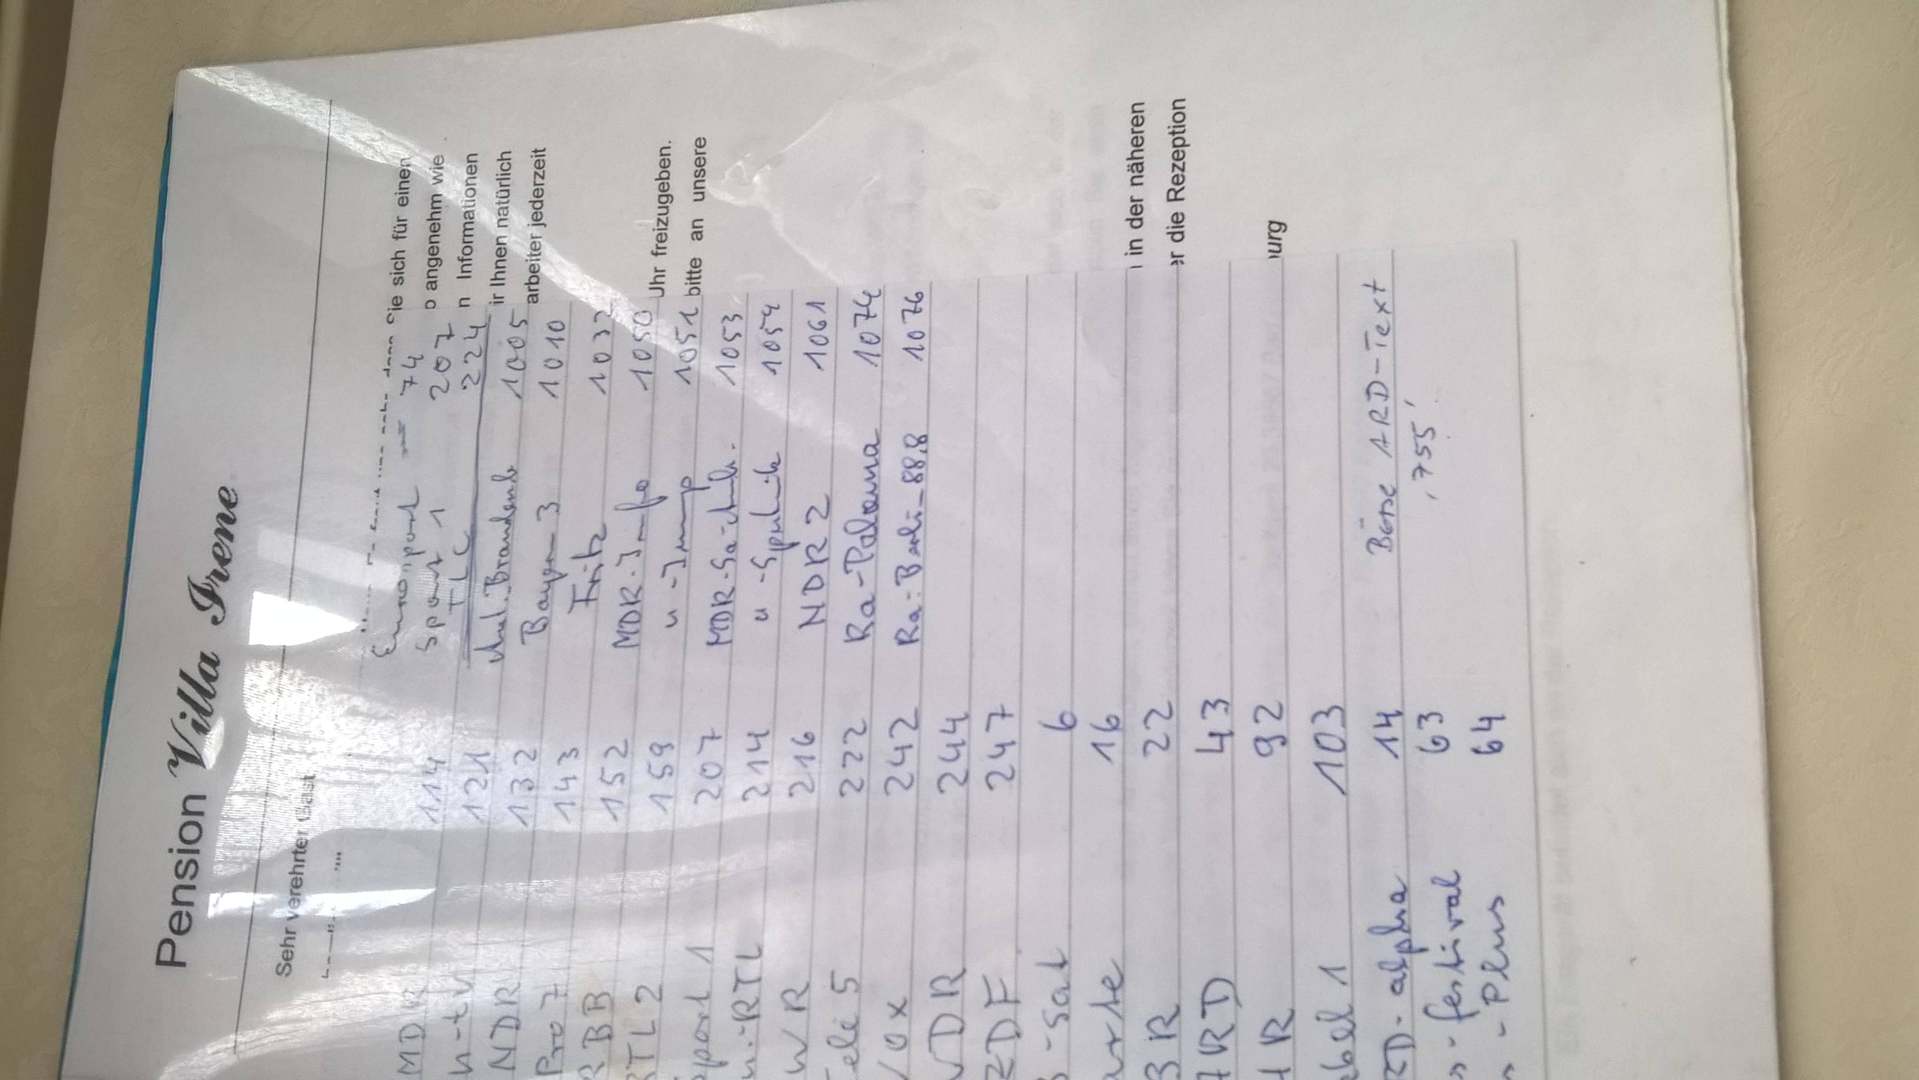 Pension Villa Irene
Sehr verehrter Gast
ie sich für einen
angenehm wie
n Informationen
ir Ihnen natürlich
arbeiter jederzeit
Uhr freizugeben.
bitte an unsere
in der näheren
er die Rezeption
urg
MDR 114 74
n-tv 121 Sport 1 207
NDR 132 TLC 224
Pro 7 143 1005
RBB 152 Bayern 3 1010
RTL 2 159 Fritz 1032
Sport 1 207 MDR-Info 1050
214 1051
WR 216 MDR- 1053
ele 5 222 u -Sputnik 1054
Vox 242 NDR 2 1061
WDR 244 Ra-Paloma 1074
ZDF 247 Ra-Berli-88,8 1076
-Sat 6
arte 16
BR 22
ARD 43
HR 92
abel 1 103
RD-alpha 14 Börse ARD-Text
- festival 63 ,755'
- Plus 64